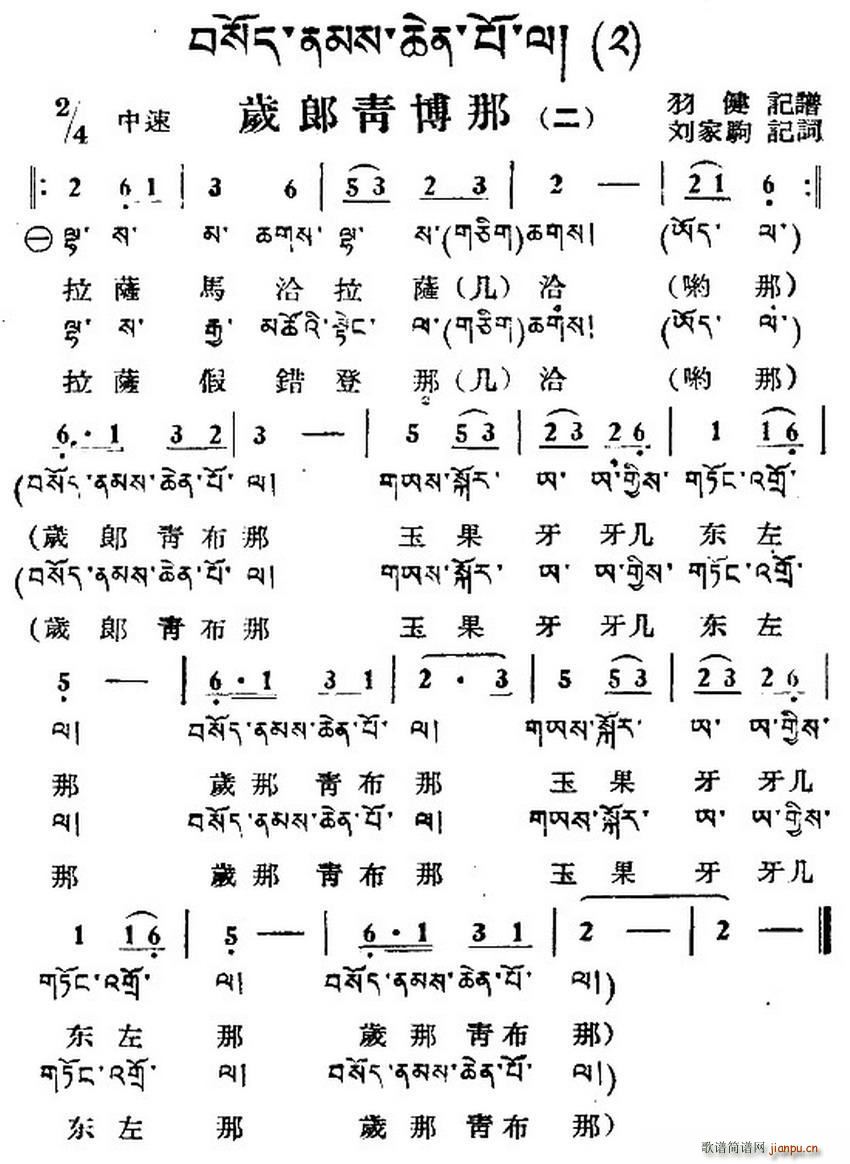 བསོད་ནམས་ཆེན་པོ་ལ། (༢)
2/4 中速 歲郎靑博那 (二) 羽健 記譜
刘家駒 記詞
‖: 2 6 1 | 3 6 | 5 3 2 3 | 2 — | 2 1 6 :‖
㊀ ལྷ་ས་མ་ཆགས་ལྷ་ས་(གཅིག)ཆགས། (ཨོད་ལ་)
拉薩馬洽拉薩(几)洽 (喲那)
ལྷ་ས་རྒྱ་མཚོའི་སྟེང་ལ་(གཅིག)ཆགས། (ཨོད་ལ་)
拉薩假錯登那(几)洽 (喲那)
6 · 1 3 2 | 3 — | 5 5 3 | 2 3 2 6 | 1 1 6 |
(བསོད་ནམས་ཆེན་པོ་ལ། གཡས་སྐོར་ཨ་ཨ་གྱིས་གཏོང་འགྲོ་
(歲郎靑布那 玉果牙牙几东左
(བསོད་ནམས་ཆེན་པོ་ལ། གཡས་སྐོར་ཨ་ཨ་གྱིས་གཏོང་འགྲོ་
(歲郎靑布那 玉果牙牙几东左
5 — | 6 · 1 3 1 | 2 · 3 | 5 5 3 | 2 3 2 6 |
ལ། བསོད་ནམས་ཆེན་པོ་ལ། གཡས་སྐོར་ཨ་ཨ་གྱིས་
那 歲那靑布那 玉果牙牙几
ལ། བསོད་ནམས་ཆེན་པོ་ལ། གཡས་སྐོར་ཨ་ཨ་གྱིས་
那 歲那靑布那 玉果牙牙几
1 1 6 | 5 — | 6 · 1 3 1 | 2 — | 2 — ‖
གཏོང་འགྲོ་ལ། བསོད་ནམས་ཆེན་པོ་ལ།)
东左那 歲那靑布那)
གཏོང་འགྲོ་ལ། བསོད་ནམས་ཆེན་པོ་ལ།)
东左那 歲那靑布那)
歌谱简谱网 jianpu.cn